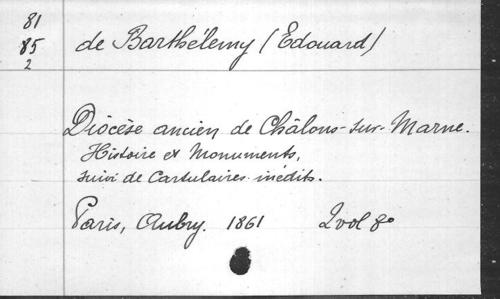 81
85
2
de Barthélemy (Edouard)
Diocèse ancien de Châlons-sur-Marne.
Histoire et Monuments,
suivi de Cartulaires inédits.
Paris, Aubry. 1861 2 vol 8°